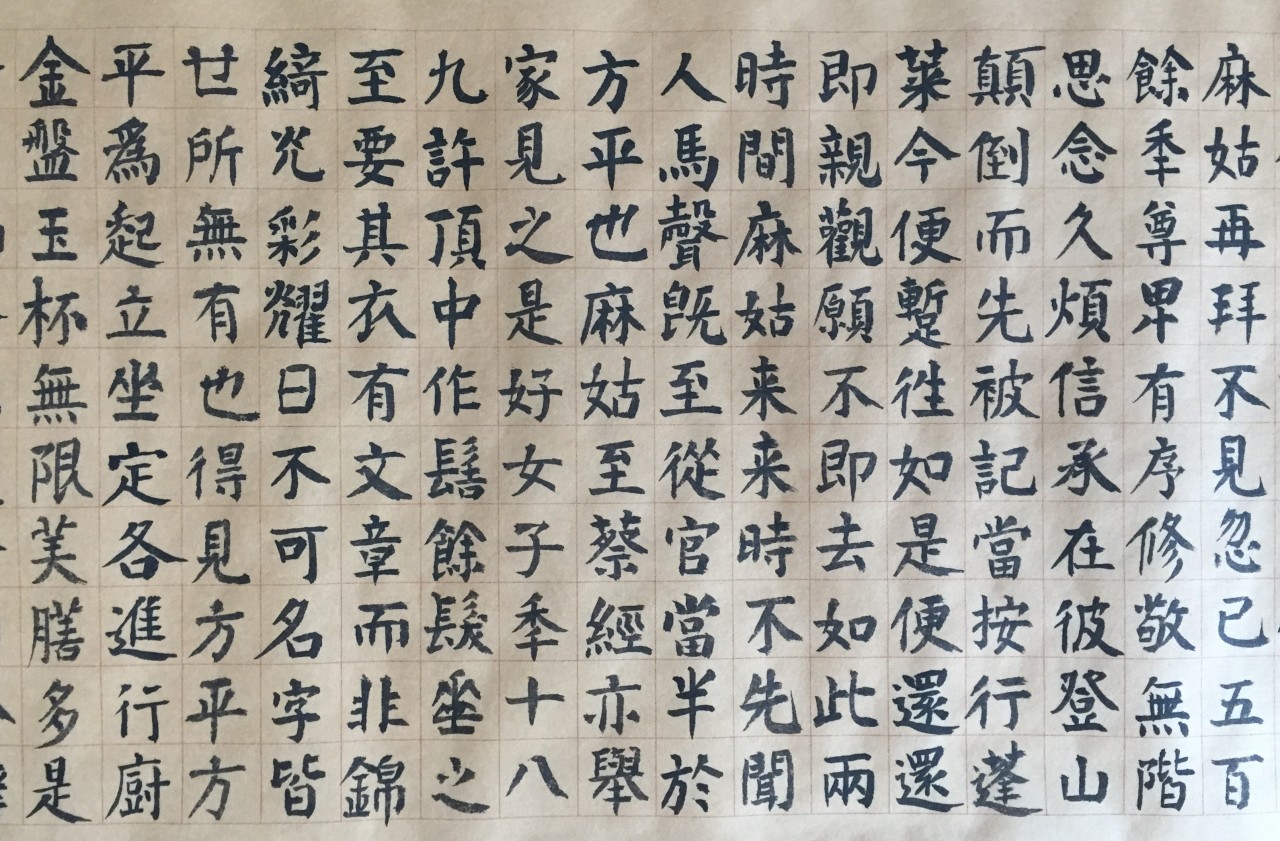 麻姑再拜不見忽已五百
餘秊尊卑有序修敬無階
思念久煩信承在彼登山
顛倒而先被記當按行蓬
萊今便蹔往如是便還還
即親觀願不即去如此兩
時間麻姑来来時不先聞
人馬聲既至從官當半於
方平也麻姑至蔡經亦舉
家見之是好女子秊十八
九許頂中作髻餘髮坐之
至要其衣有文章而非錦
綺光彩耀日不可名字皆
世所無有也得見方平方
平爲起立坐定各進行廚
金盤玉杯無限美膳多是